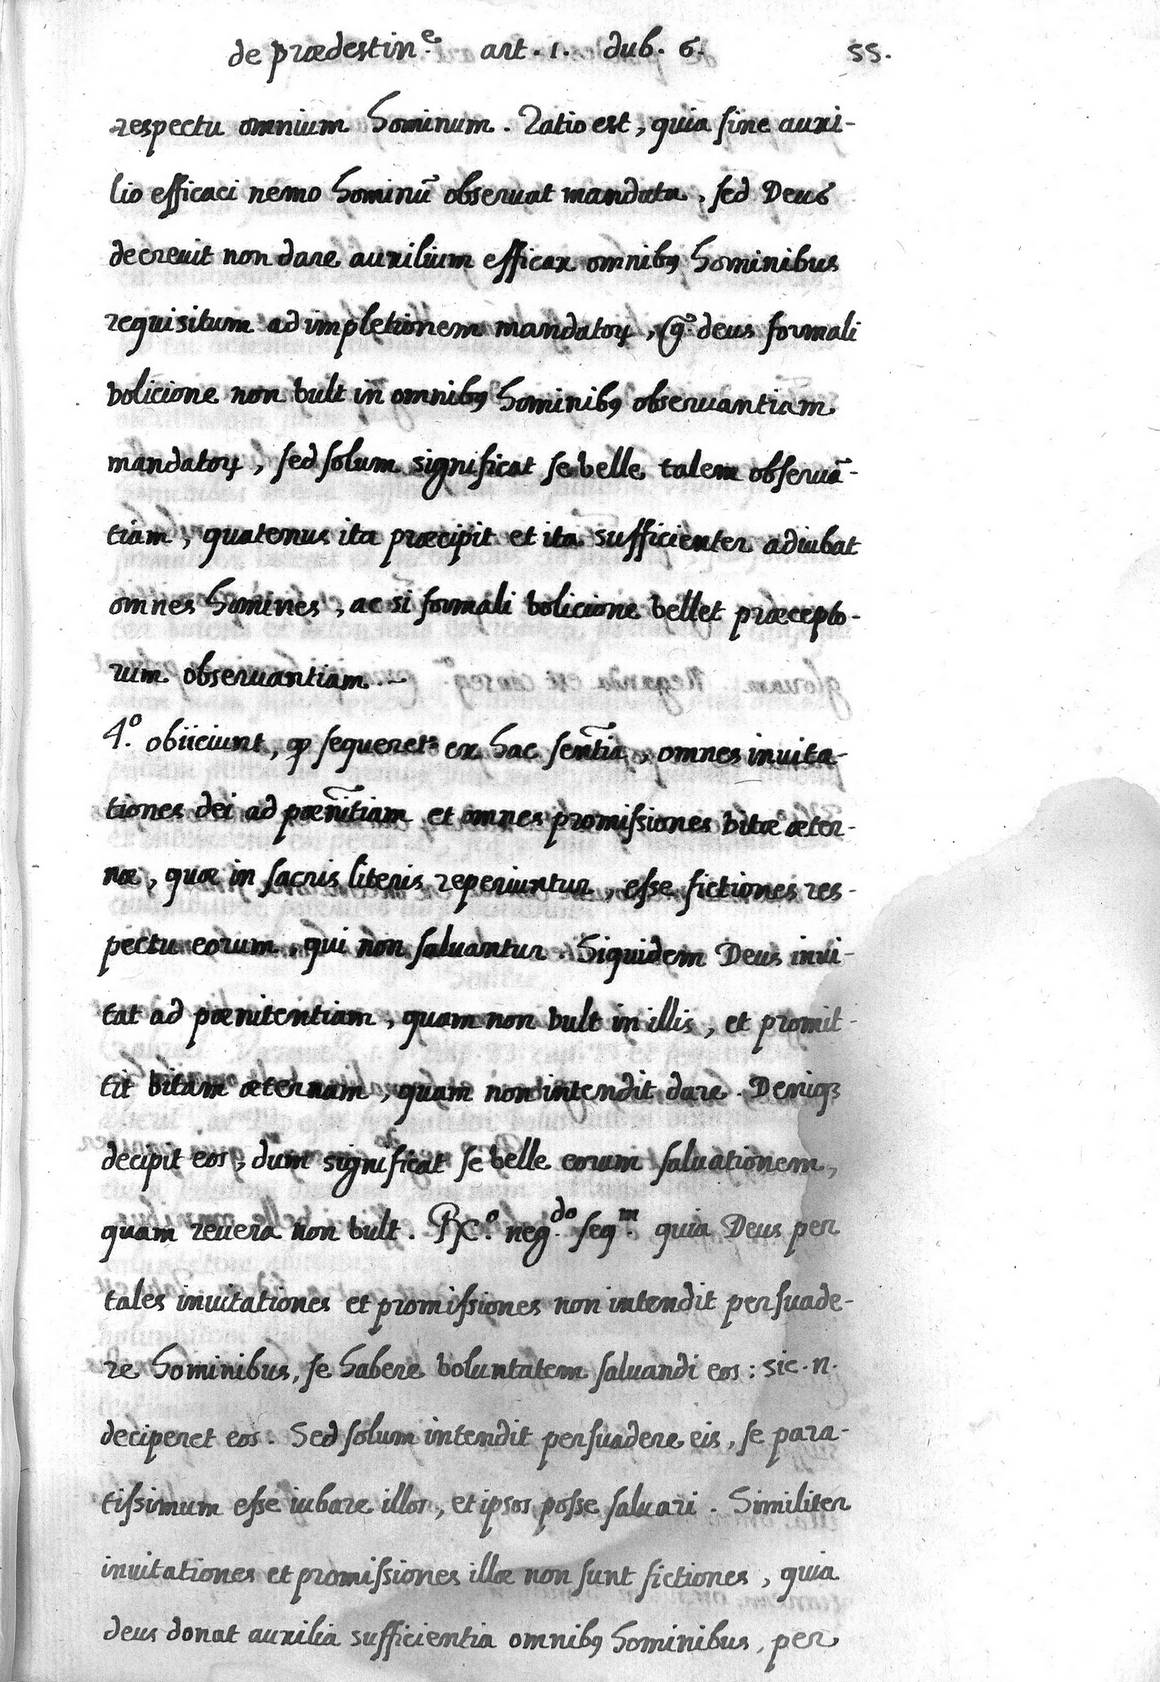 de prædestin.e art. 1. dub. 6. 55.
respectu omnium hominum. Ratio est, quia sine auxi-
lio efficaci nemo hominū obseruat mandata, sed Deus
decreuit non dare auxilium efficax omnibꝰ hominibus
requisitum ad impletionem mandatoꝝ, g.º deus formali
volicione non vult in omnibꝰ hominibꝰ obseruantiam
mandatoꝝ, sed solum significat se velle talem obseruā-
tiam, quatenus ita præcipit et ita sufficienter adiubat
omnes homines, ac si formali volicione vellet præcepto-
rum obseruantiam.
4.º obiiciunt, ꝙ sequeretr ex hac sent̄ia, omnes inuita-
tiones dei ad pœnit̄iam et omnes promissiones vitæ æter-
næ, quæ in sacris literis reperiuntur, esse fictiones res-
pectu eorum, qui non saluantur. Siquidem Deus inui-
tat ad pœnitentiam, quam non vult in illis, et promit-
tit vitam æternam, quam non intendit dare. Deniqꝫ
decipit eos, dum significat se velle eorum saluationem,
quam reuera non vult. Rx.º neg.do seq.m quia Deus per
tales inuitationes et promissiones non intendit persuade-
re hominibus, se habere voluntatem saluandi eos: sic .n.
deciperet eos. Sed solum intendit persuadere eis, se para-
tissimum esse iubare illos, et ipsos posse saluari. Similiter
inuitationes et promissiones illæ non sunt fictiones, quia
deus donat auxilia sufficientia omnibꝰ hominibus, per